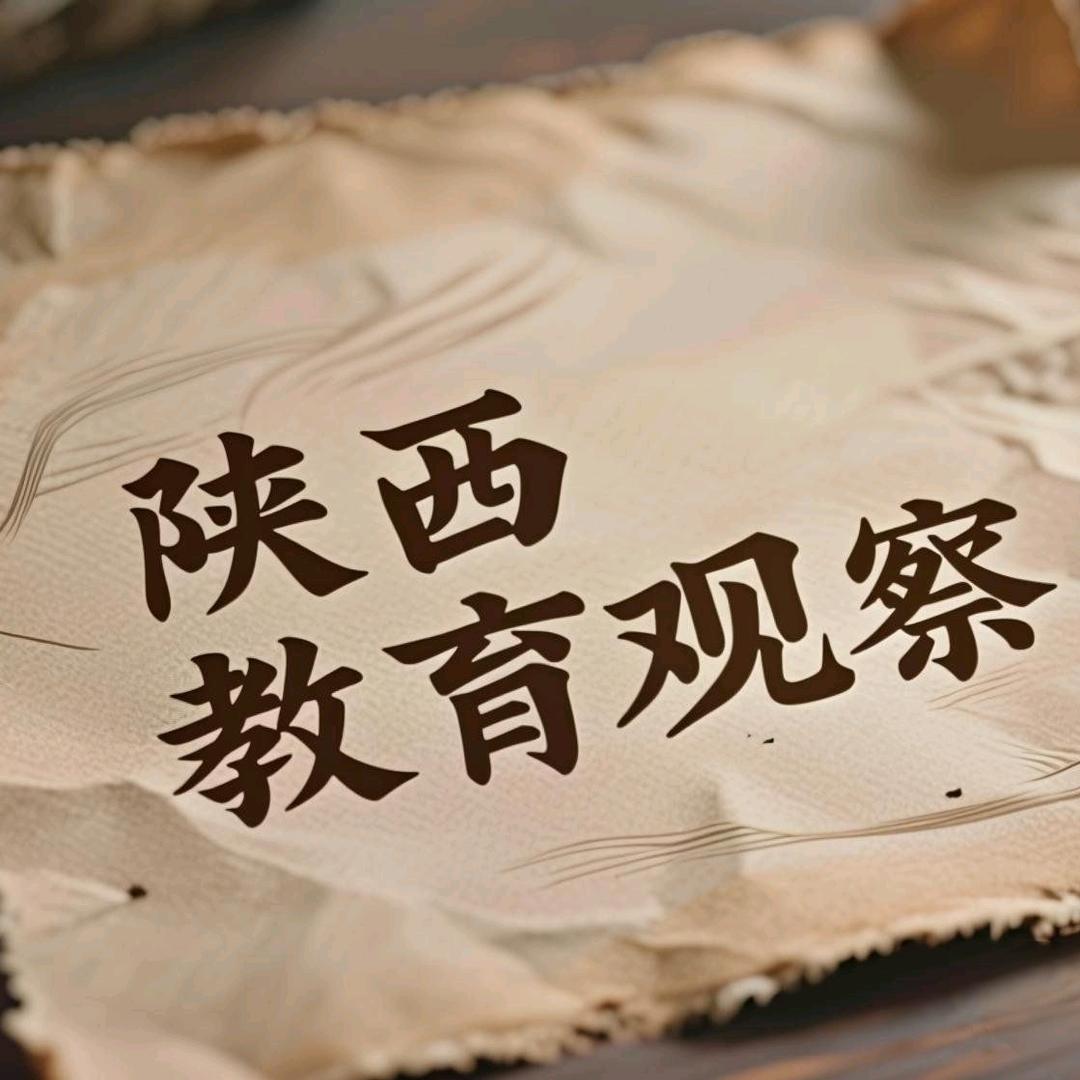 陕西
教育观察